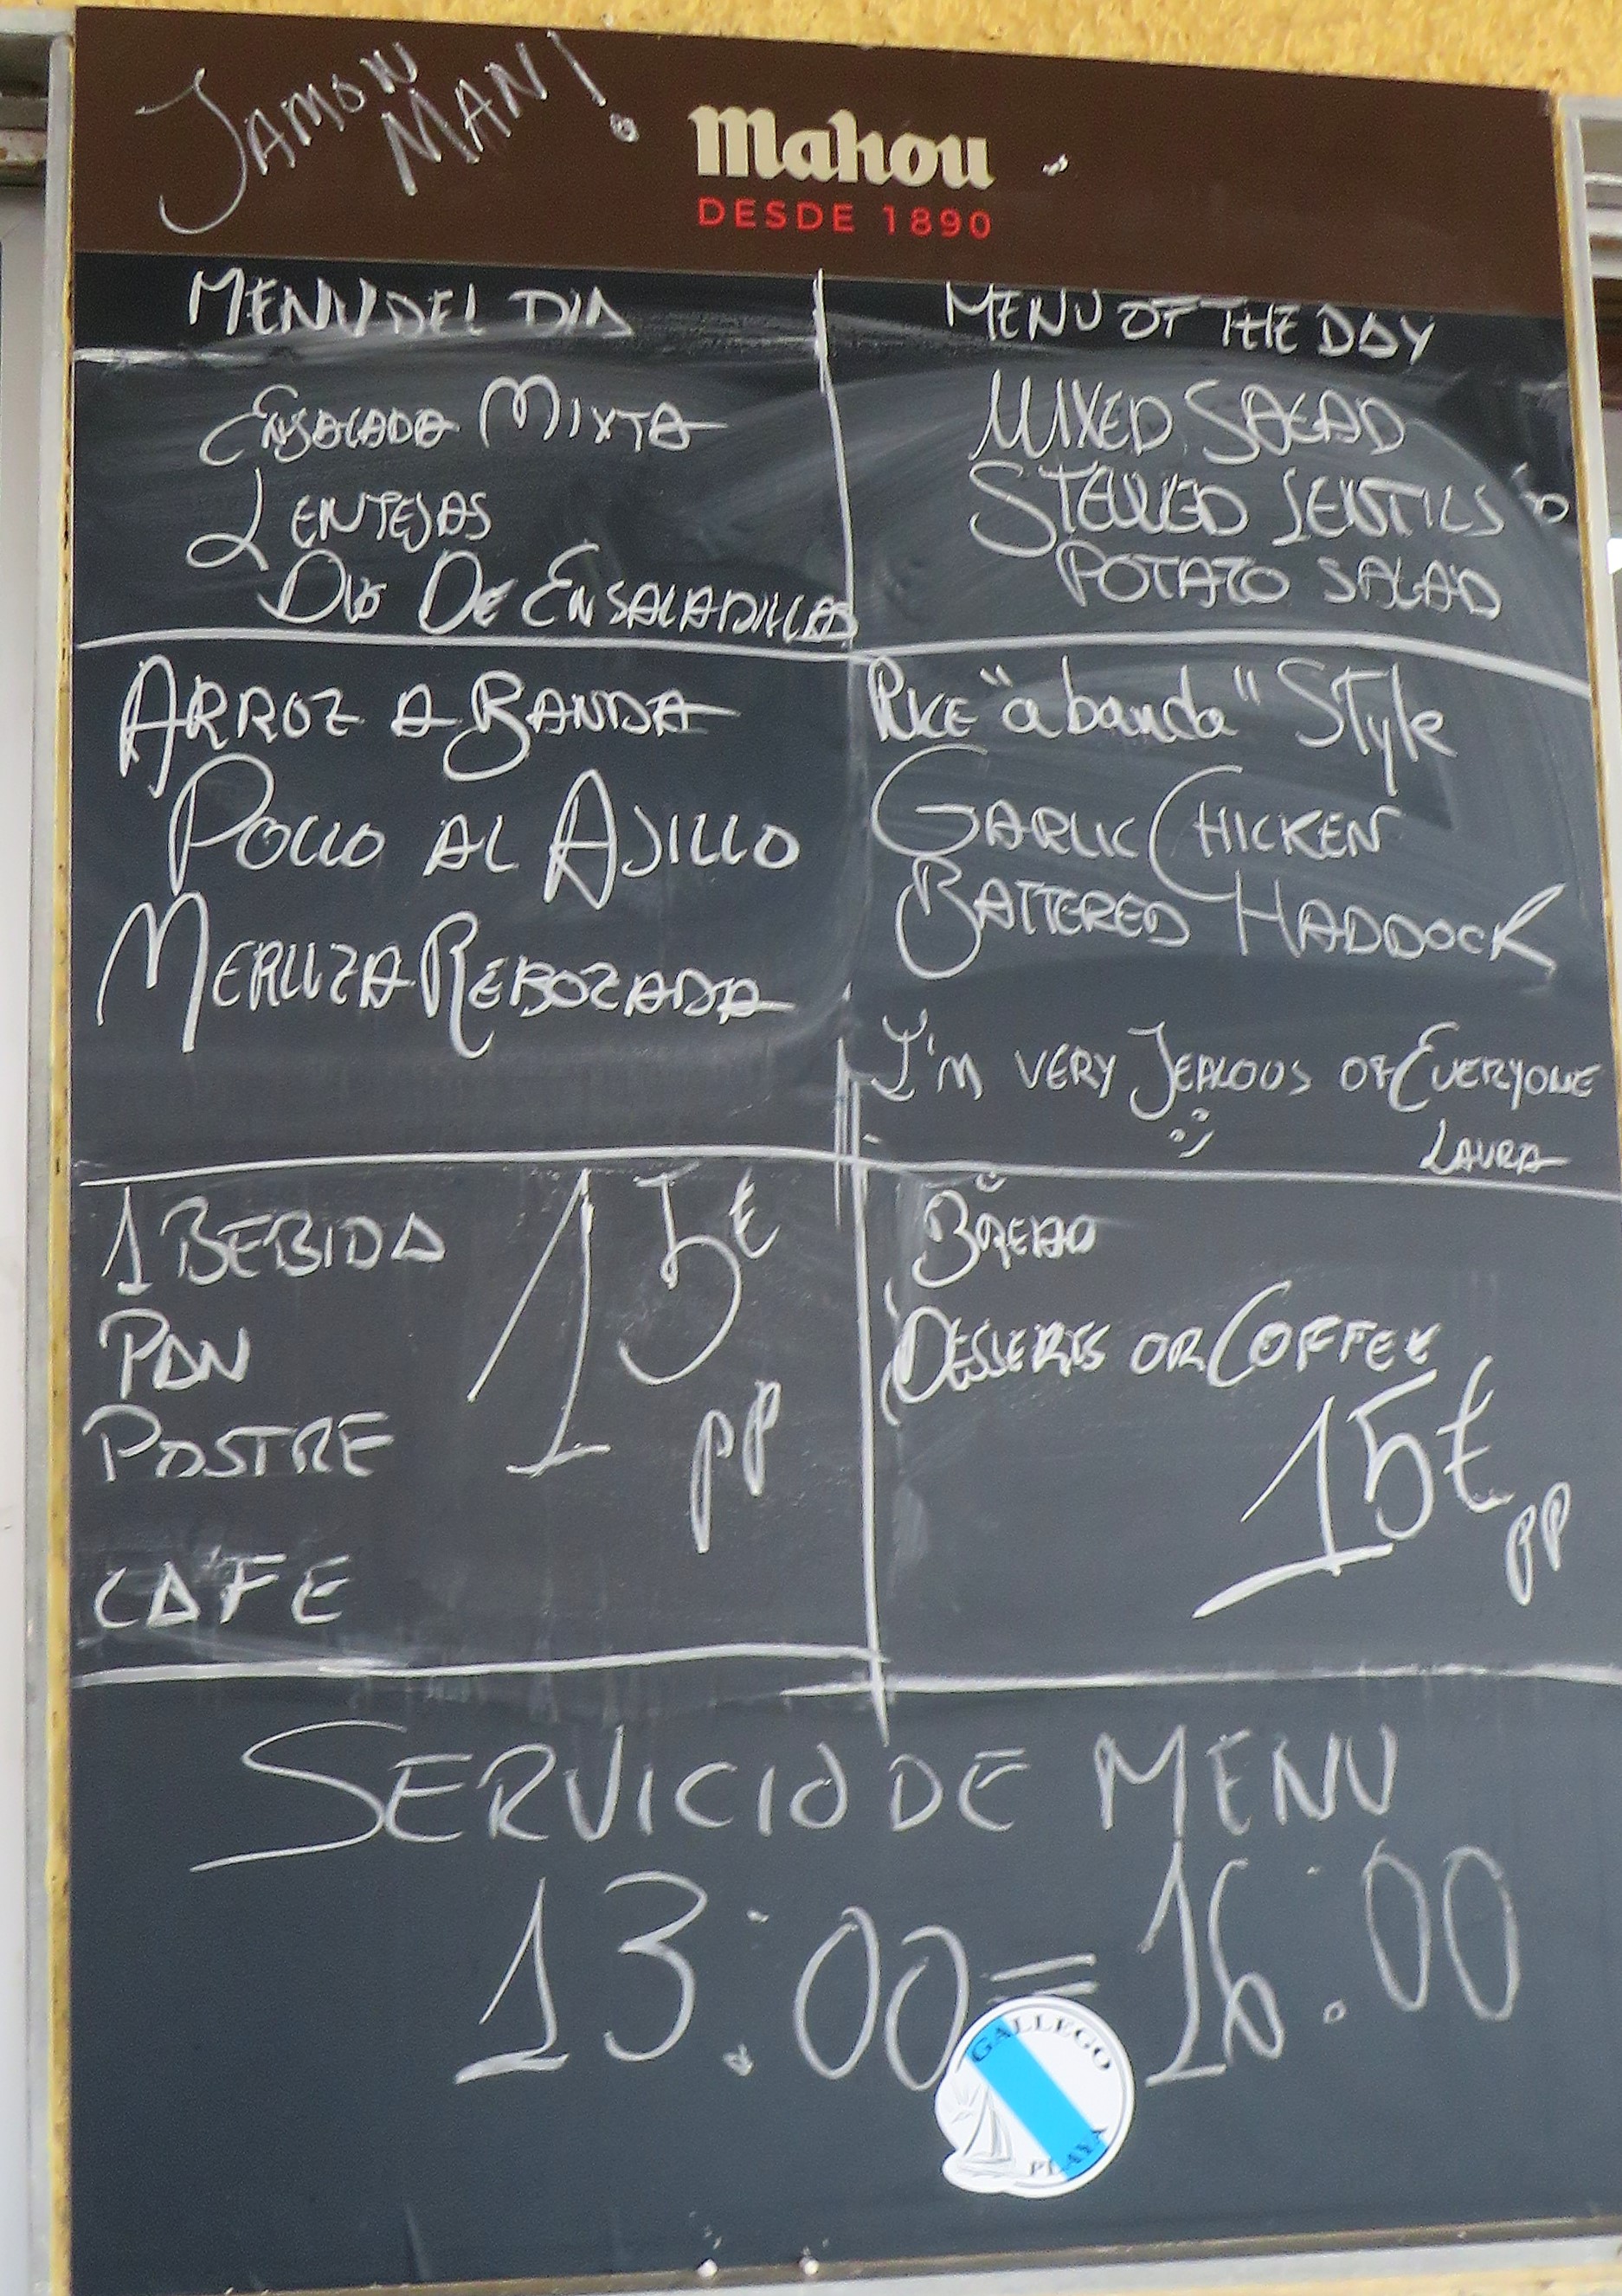 JAMON
MAN!
Mahou
DESDE 1890
MENU DEL DIA
ENSALADA MIXTA
LENTEJAS
DUO DE ENSALADILLAS
ARROZ A BANDA
POLLO AL AJILLO
MERLUZA REBOZADA
1 BEBIDA
PAN
POSTRE
CAFE
15€
PP
MENU OF THE DAY
MIXED SALAD
STEWED LENTILS
POTATO SALAD
RICE "a banda" STyle
GARLIC CHICKEN
BATTERED HADDOCK
I'M VERY JEALOUS OF EVERYONE
:)
LAURA
BREAD
DESSERTS OR COFFEE
15€
PP
SERVICIO DE MENU
13:00=16:00
GALLEGO
PLAYA